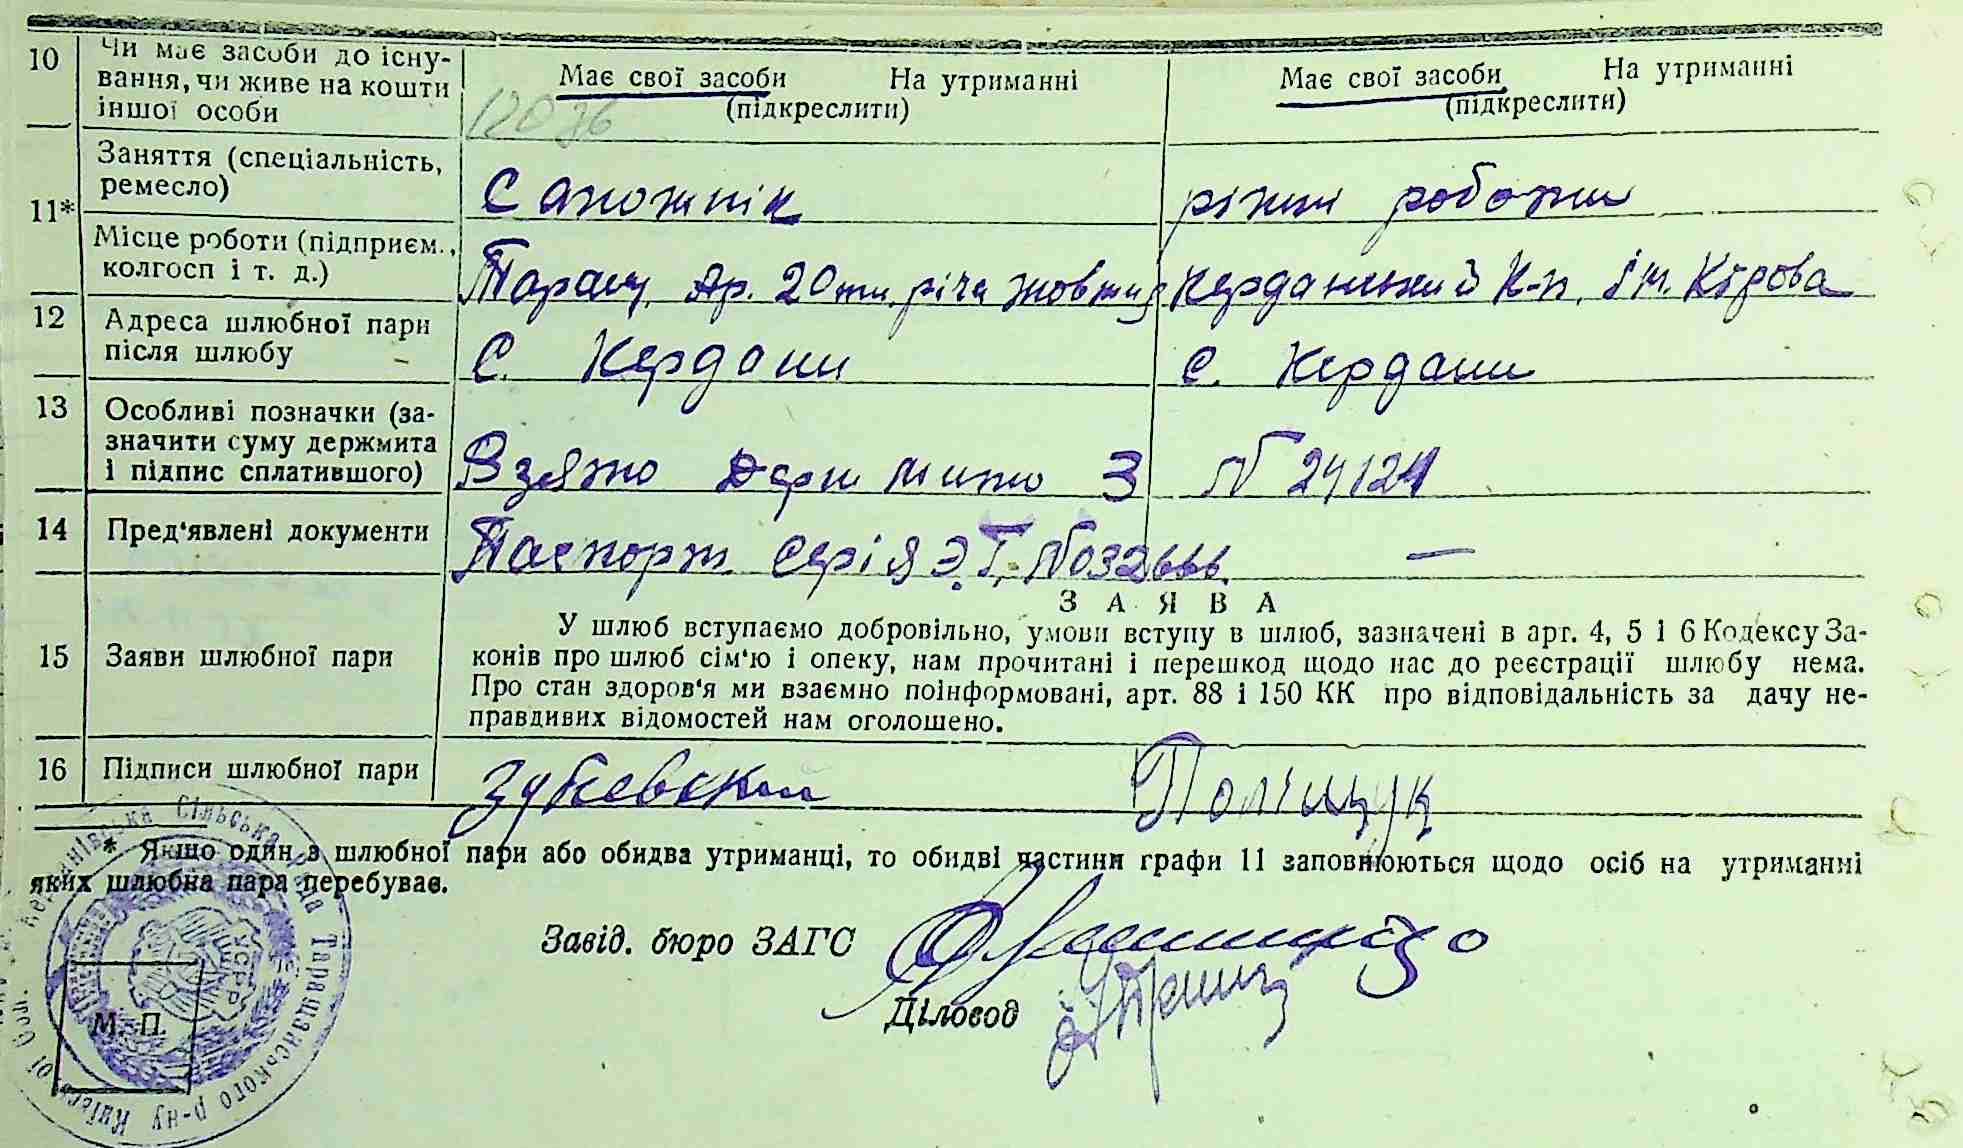 10 Чи має засоби до існу-
вання, чи живе на кошти
іншої особи
Має свої засоби На утриманні
(підкреслити)
Має свої засоби На утриманні
(підкреслити)
11* Заняття (спеціальність,
ремесло)
Сапожнік
ріжні роботи
Місце роботи (підприєм.,
колгосп і т. д.)
Таращ. Ар. 20 ти річа Жовтня
Керданський К-п. ім. Кірова
12 Адреса шлюбної пари
після шлюбу
С. Кердани
с. Кердани
13 Особливі позначки (за-
значити суму держмита
і підпис сплатившого)
Взято Держ мито 3
N 24124
14 Пред'явлені документи
Паспорт Серія Э.Г. №032666 —
15 Заяви шлюбної пари
ЗАЯВА
У шлюб вступаємо добровільно, умови вступу в шлюб, зазначені в арт. 4, 5 і 6 Кодексу За-
конів про шлюб сім'ю і опеку, нам прочитані і перешкод щодо нас до реєстрації шлюбу нема.
Про стан здоров'я ми взаємно поінформовані, арт. 88 і 150 КК про відповідальність за дачу не-
правдивих відомостей нам оголошено.
16 Підписи шлюбної пари
Зубаевский
Поліщук
* Якщо один з шлюбної пари або обидва утриманці, то обидві частини графи 11 заповнюються щодо осіб на утриманні
яких шлюбна пара перебуває.
Завід. бюро ЗАГС
Діловод
М. П.
Сільська Рада Таращанського р-ну Київської
УСРР